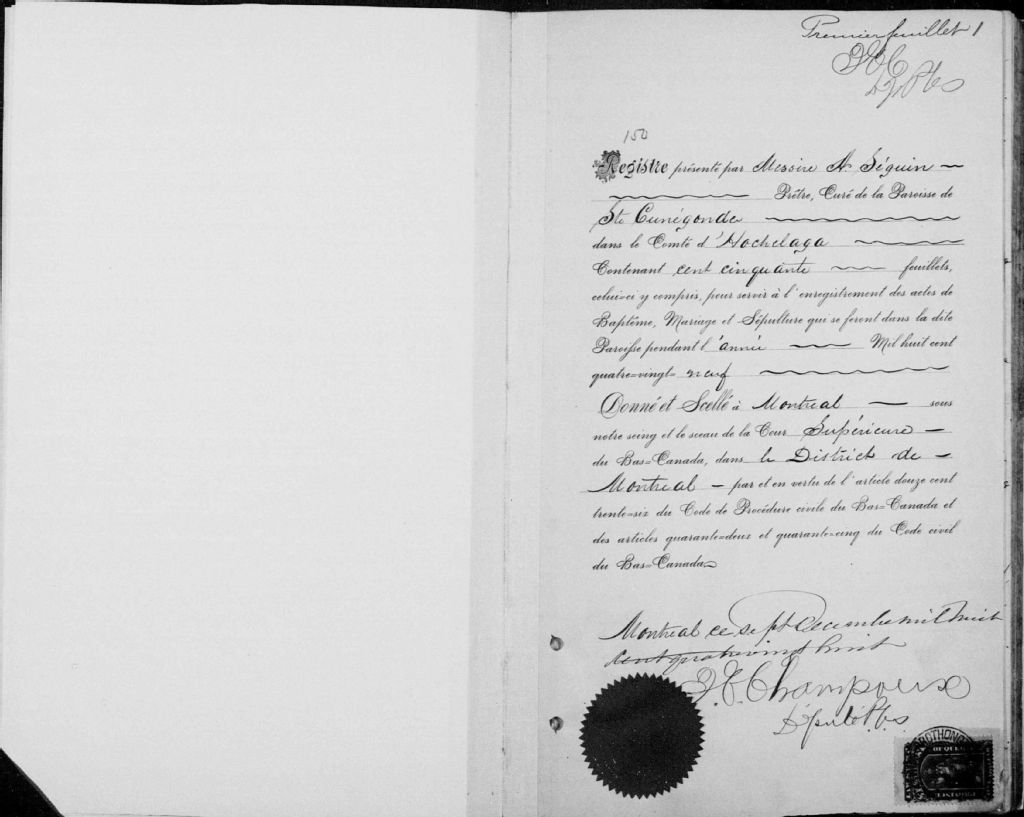 Premier feuillet 1
150
Registre présenté par Messire A. Séguin
Prêtre, Curé de la Paroisse de
Ste Cunégonde
dans le Comté d'Hochelaga
Contenant cent cinquante feuillets,
celui-ci y compris, pour servir à l'enregistrement des actes de
Baptême, Mariage et Sépulture qui se feront dans la dite
Paroisse pendant l'année Mil huit cent
quatre=vingt= neuf
Donné et Scellé à Montreal sous
notre seing et le sceau de la Cour Supérieure
du Bas=Canada, dans le District de
Montreal par et en vertu de l'article douze cent
trente=six du Code de Procédure civile du Bas=Canada et
des articles quarante=deux et quarante=cinq du Code civil
du Bas=Canada.
Montreal ce sept Decembre mil huit
cent quatrevingt huit
Champoux